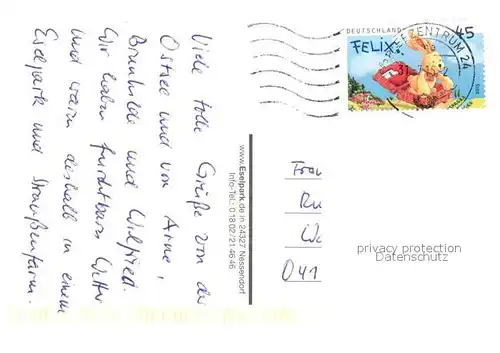 Viele tolle Grüße von der
Ostsee und von Arne,
Brunhilde und Wilfried.
Wir haben furchtbares Wetter
und waren deshalb in einem
Eselpark und Straußenfarm.
www.Eselpark.de in 24327 Nessendorf
Info-Tel.: 0 18 02 / 21 46 46
DEUTSCHLAND
45
FELIX
ZENTRUM 24
Frau
Ru
We
041
privacy protection
Datenschutz